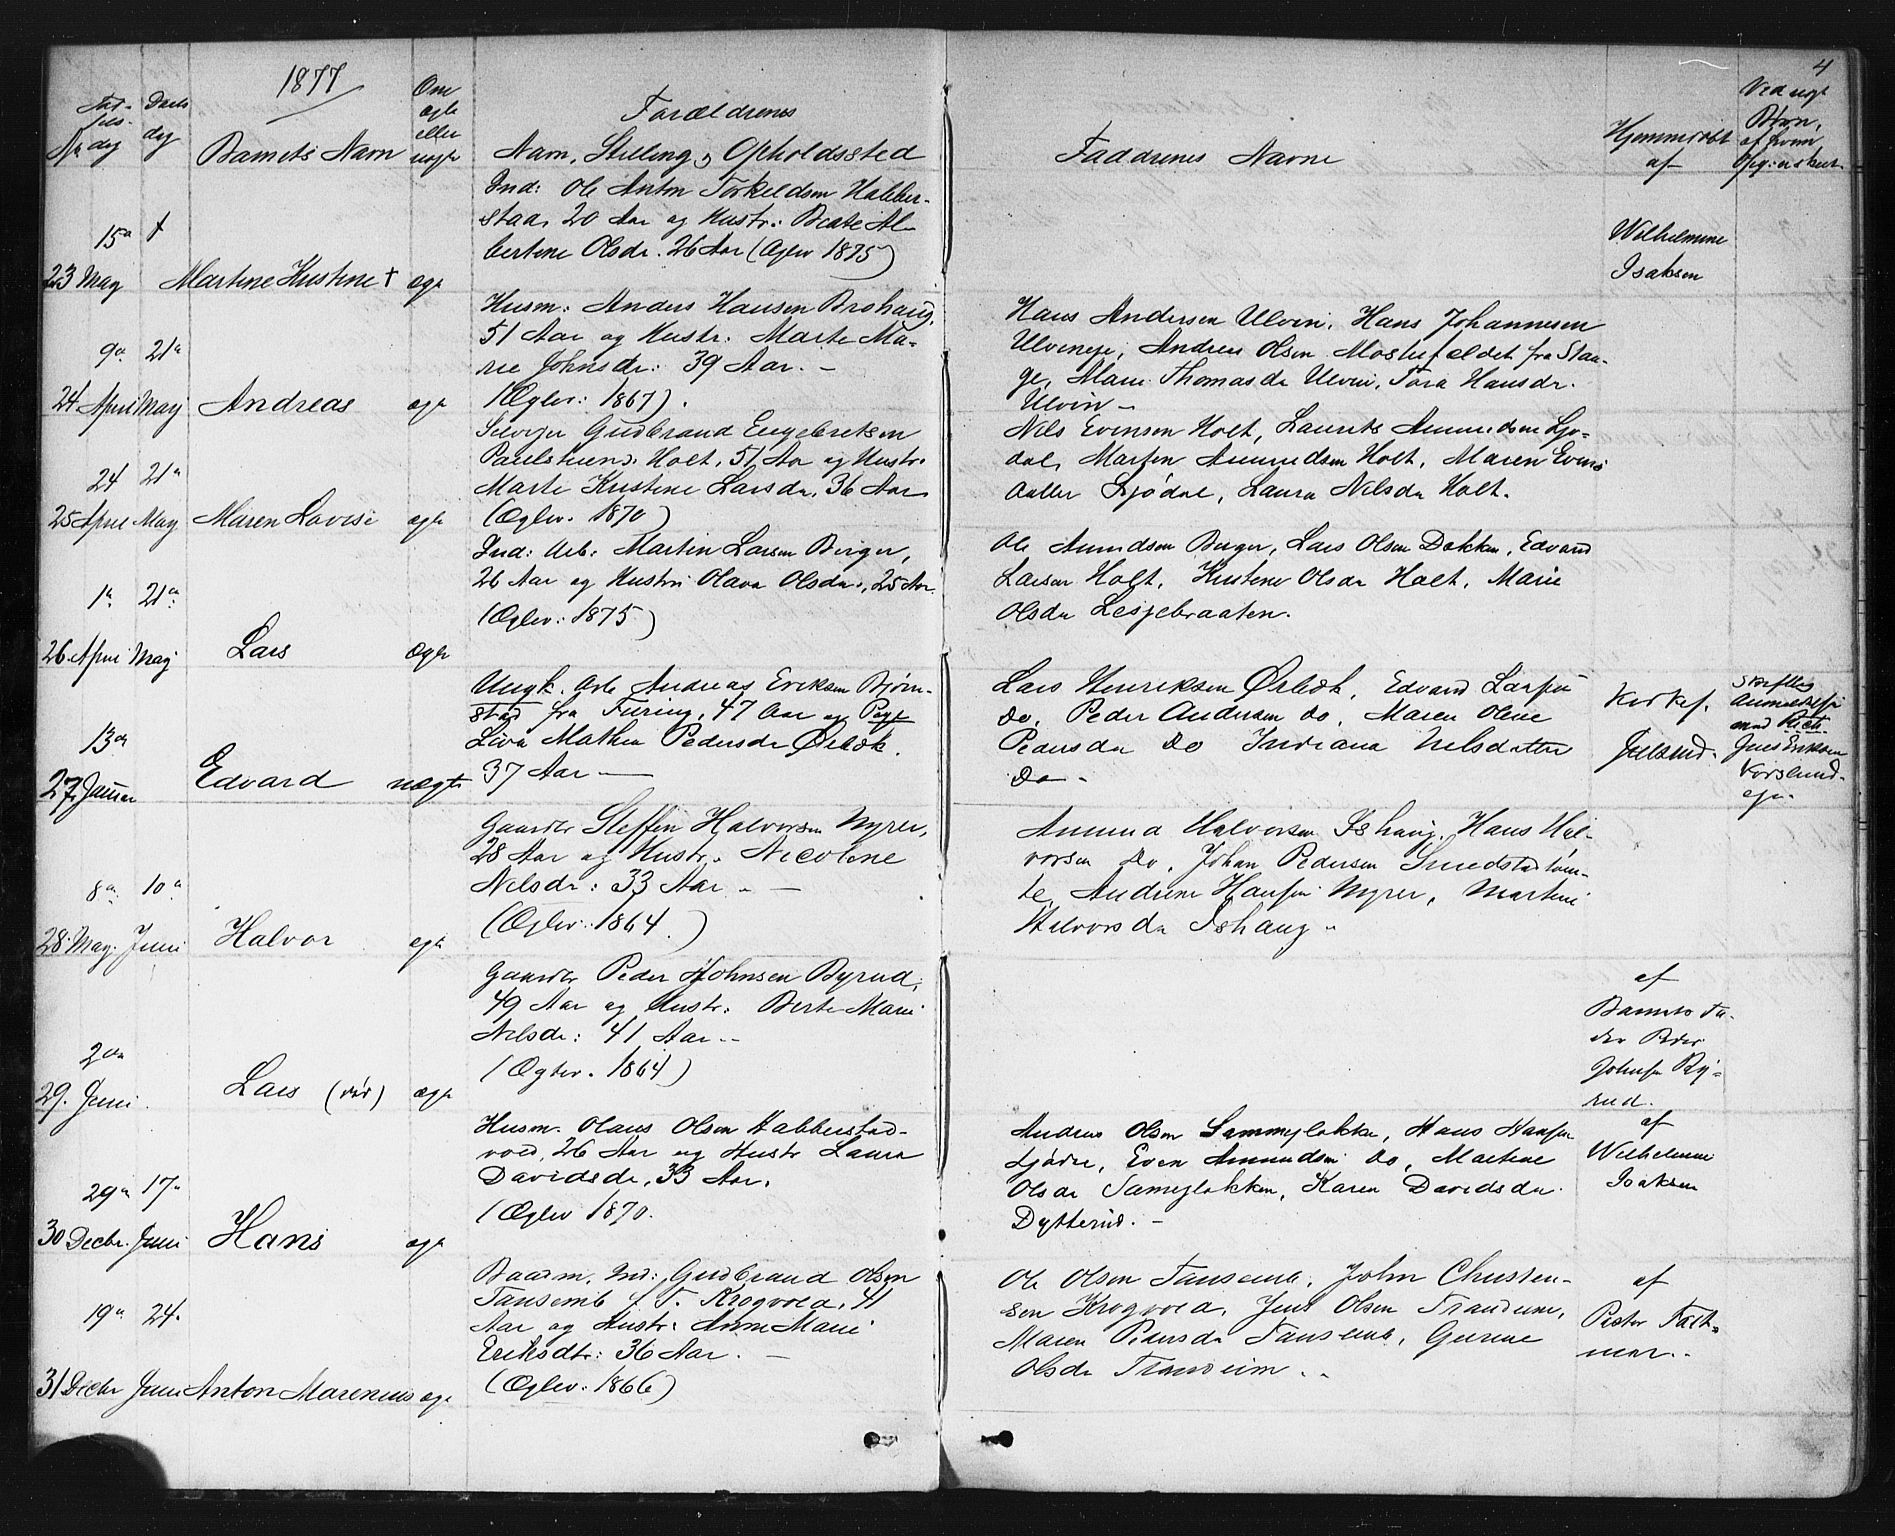 1877
4
Nr
Fød-
sels-
dag
Daabs
dag
Barnets Navn
Om
ægte
eller
uægte
Forældrenes
Navn, Stilling og Opholdssted
Faddrenes Navne
Hjemmedøbt
af
Ved uægt
Børn,
af hvem
Opg: er skeet
15de †
23 May Martine Kristine † ægt
Ind: Ole Anton Torkeldsen Habber-
stad, 20 Aar og Hustr: Beate Al-
bertine Olsdr. 26 Aar (Ægtev 1875)
Wilhelmine
Isaksen
9de 21de
24 April May Andreas ægt
Husm: Anders Hansen Brohaug,
51 Aar og Hustr. Marte Ma-
rie Johnsdr: 39 Aar. -
(Ægtev: 1867).
Hans Andersen Ulvin, Hans Johannesen
Ulvineje, Andreas Olsen Mostufeldet fra Stan-
ge, Marie Thomasdr Ulvin, Tora Hansdr.
Ulvin -
24 21de
25 April May Maren Lovise ægt
Selvejer Gudbrand Engebretsen
Paulstuen Holt, 51 Aar og Hustr.
Marte Kristine Larsdr, 36 Aar
(Ægtev. 1870)
Nils Evensen Holt, Laurits Amundsen Ljø-
dal, Martin Amundsen Holt, Maren Evens
datter Ljødal, Laura Nilsdr Holt.
1de 21de
26 April May Lars Ægt
Ind: Arb: Martin Larsen Berger,
26 Aar og Hustr: Olava Olsdr, 25 Aar
(Ægtev: 1875)
Ole Amundsen Berger, Lars Olsen Dokken, Edvard
Larsen Holt, Kristine Olsdr Holt, Marie
Olsdr Lesjebraaten.
13de
27 Januar Edvard uægte
Ungk. Arb Andreas Eriksen Bjørn-
stad fra Furnes, 47 Aar og Pige
Liva Mathea Pedersdr Ørbæk.
37 Aar -
Lars Henriksen Ørbæk, Edvard Larsen
Do, Peder Andersen do, Maren Oline
Pedersdr Do Indiana Nilsdatter
Do -
Kirkes.
Julsrud.
Skriftlig
Anmeldelse
med
Jens Eriksen
Korslund-
eje.
8de 10de
28 May. Juni Halvor ægt
Gaardbr Steffen Halvorsen Myrer,
28 Aar og Hustr. Nicoline
Nilsdr: 33 Aar. -
(Ægtev: 1864.)
Amund Halvorsen Ishaug, Hans Hal-
vorsen Do, Johan Pedersen Smedstadtom-
te, Andrine Hansen Myrer, Martine
Halvorsdr Ishaug.
2den
29. Juni. Lars (død) ægt
Gaardbr Peder Johnsen Byrud,
49 Aar og Hustr: Berte Marie
Nilsdr: 41 Aar -
(Ægtev. 1864)
af
Barnets Fa-
der Peder
Johnsen By-
rud.
29de 17de
30 Decbr. Juni Hans ægt
Husm. Olaus Olsen Habberstad-
vold, 26 Aar og Hustr Laura
Davidsdr, 33 Aar.
(Ægtev 1870.
Andreas Olsen Sammeyløkken, Hans Hansen
Ljødal, Even Amundsen Do, Martine
Olsdr Sameyløkken, Karen Davidsdr
Dytterud. -
af
Wilhelmine
Isaksen
19de 24.
31 Decbr Juni Anton Marenius ægt
Baadm. Ind: Gudbrand Olsen
Tansemb f. T. Krogvold, 41
Aar og Hustr: Anne Marie
Eriksdtr: 36 Aar. -
(Ægtev: 1866)
Ole Olsen Tansemb, John Christen-
sen Krogvold, Jens Olsen Trandum,
Maren Pedersdr Tansemb, Gurine
Olsdr Trandeim.
af